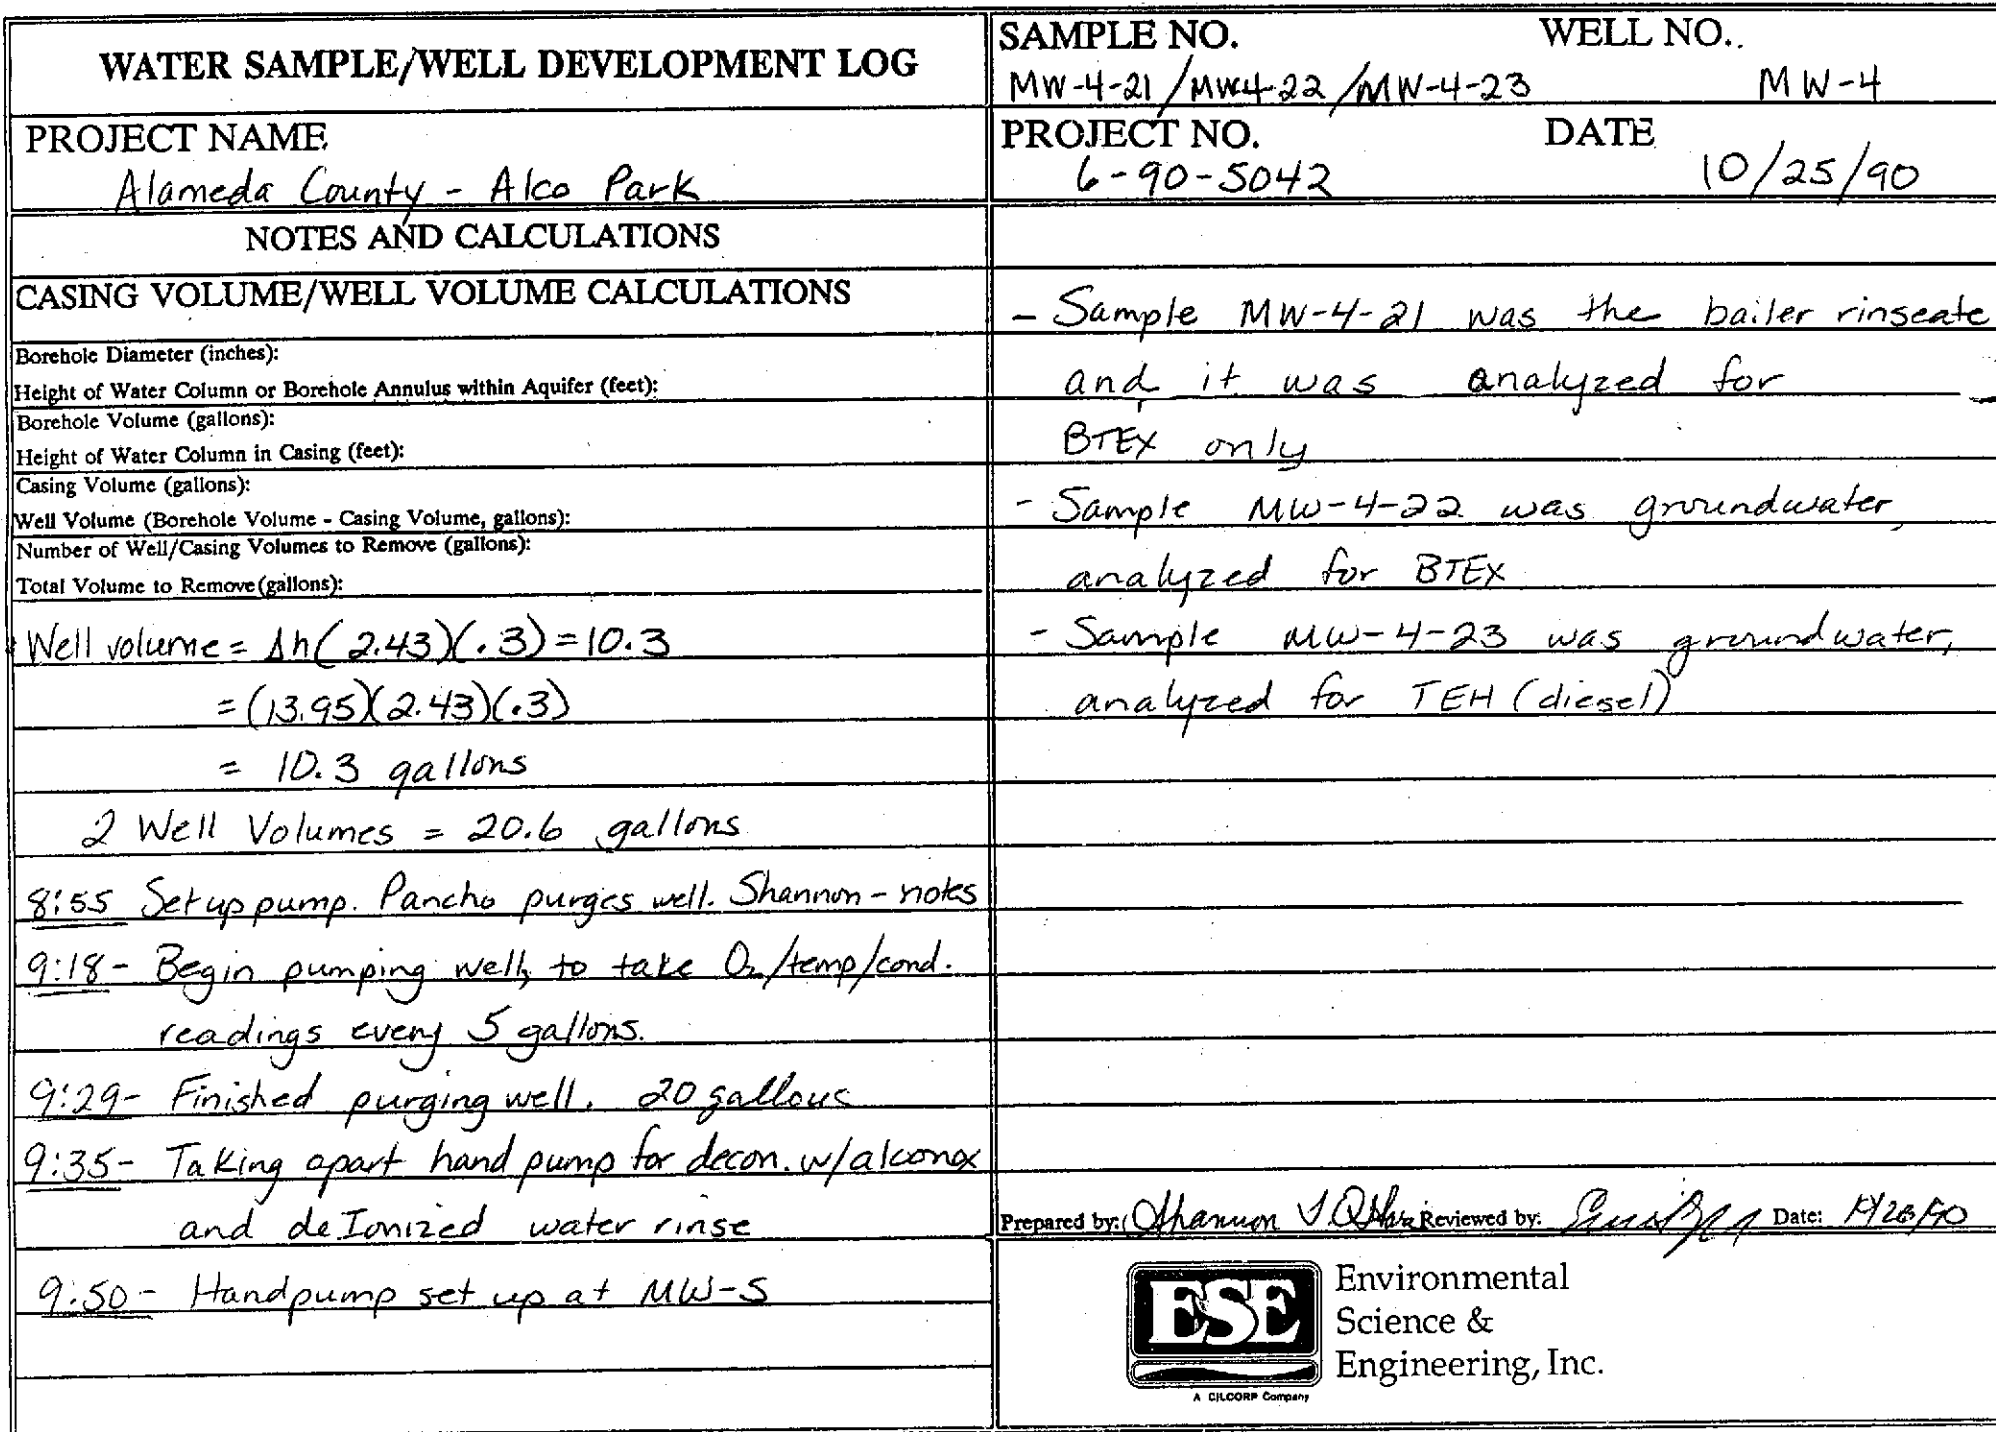 WATER SAMPLE/WELL DEVELOPMENT LOG
SAMPLE NO. WELL NO.
MW-4-21/MW4-22/MW-4-23 MW-4
PROJECT NAME
Alameda County - Alco Park
PROJECT NO. DATE
6-90-5042 10/25/90
NOTES AND CALCULATIONS
CASING VOLUME/WELL VOLUME CALCULATIONS
Borehole Diameter (inches):
Height of Water Column or Borehole Annulus within Aquifer (feet):
Borehole Volume (gallons):
Height of Water Column in Casing (feet):
Casing Volume (gallons):
Well Volume (Borehole Volume - Casing Volume, gallons):
Number of Well/Casing Volumes to Remove (gallons):
Total Volume to Remove (gallons):
Well volume = Δh(2.43)(.3) = 10.3
= (13.95)(2.43)(.3)
= 10.3 gallons
2 Well Volumes = 20.6 gallons
8:55 Set up pump. Pancho purges well. Shannon - notes
9:18 - Begin pumping well, to take O2/temp/cond.
readings every 5 gallons.
9:29 - Finished purging well. 20 gallous
9:35 - Taking apart hand pump for decon. w/alconox
and deIonized water rinse
9:50 - Handpump set up at MW-5
- Sample MW-4-21 was the bailer rinseate
and it was analyzed for
BTEX only
- Sample MW-4-22 was groundwater,
analyzed for BTEX
- Sample MW-4-23 was groundwater,
analyzed for TEH (diesel)
Prepared by: Shannon Reviewed by: Date:
ESE
Environmental
Science &
Engineering, Inc.
A CILCORP Company